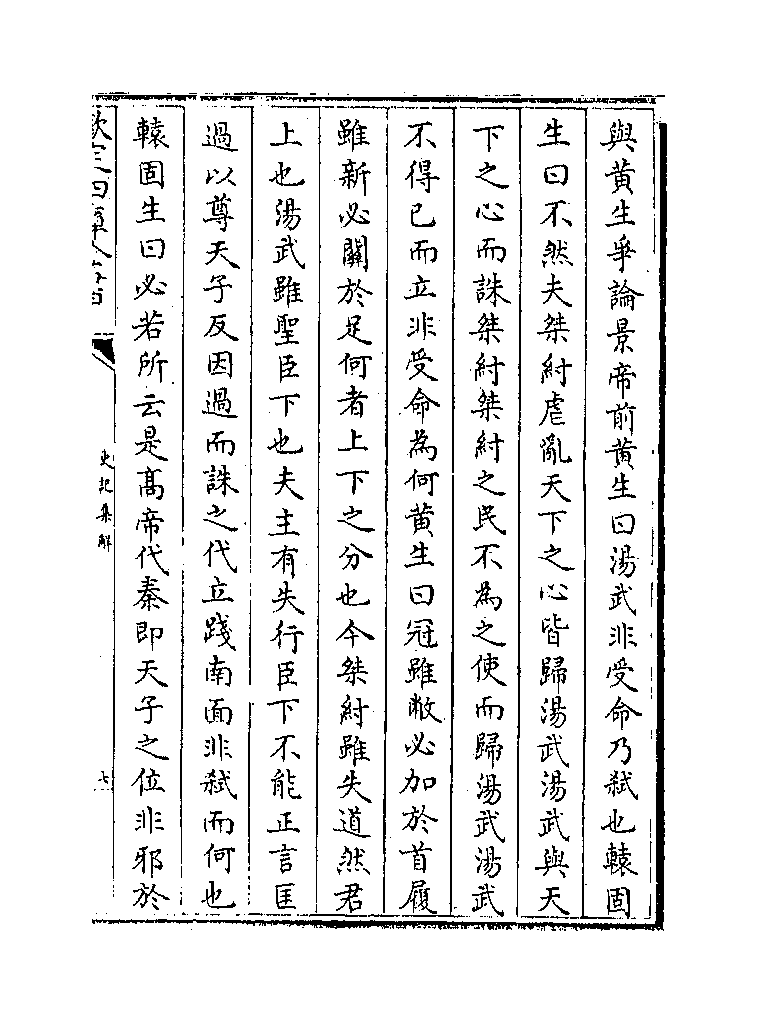 與黄生爭論景帝前黄生曰湯武非受命乃弑也轅固
生曰不然夫桀紂虐亂天下之心皆歸湯武湯武與天
下之心而誅桀紂桀紂之民不為之使而歸湯武湯武
不得已而立非受命為何黄生曰冠雖敝必加於首履
雖新必關於足何者上下之分也今桀紂雖失道然君
上也湯武雖聖臣下也夫主有失行臣下不能正言匡
過以尊天子反因過而誅之代立踐南面非弑而何也
轅固生曰必若所云是髙帝代秦即天子之位非邪於
史記集解
七